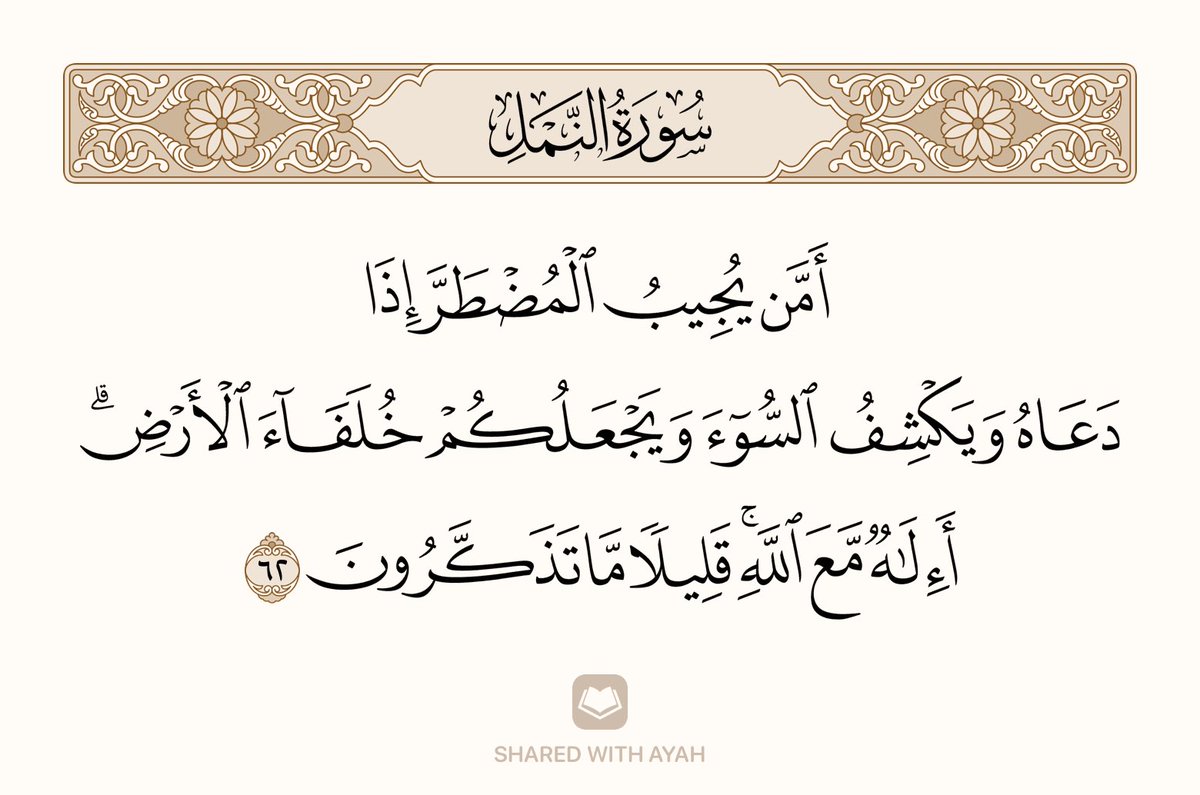 سُورَةُ النَّمْلِ
أَمَّن يُجِيبُ ٱلْمُضْطَرَّ إِذَا
دَعَاهُ وَيَكْشِفُ ٱلسُّوٓءَ وَيَجْعَلُكُمْ خُلَفَآءَ ٱلْأَرْضِ ۗ
أَءِلَـٰهٌ مَّعَ ٱللَّهِ ۚ قَلِيلًا مَّا تَذَكَّرُونَ ٦٢
SHARED WITH AYAH